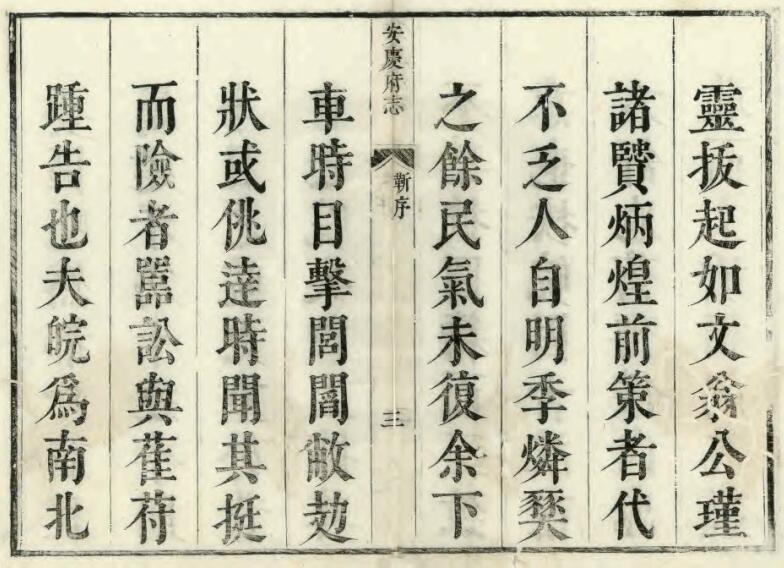 靈㧞起如文翁公瑾
諸賢炳煌前策者代
不乏人自明季燐燹
之餘民氣未復余下
安慶府志
靳序
三
車時目擊閭閻敝攰
狀或佻達時聞其挺
而險者嚚訟與萑苻
踵告也夫皖爲南北